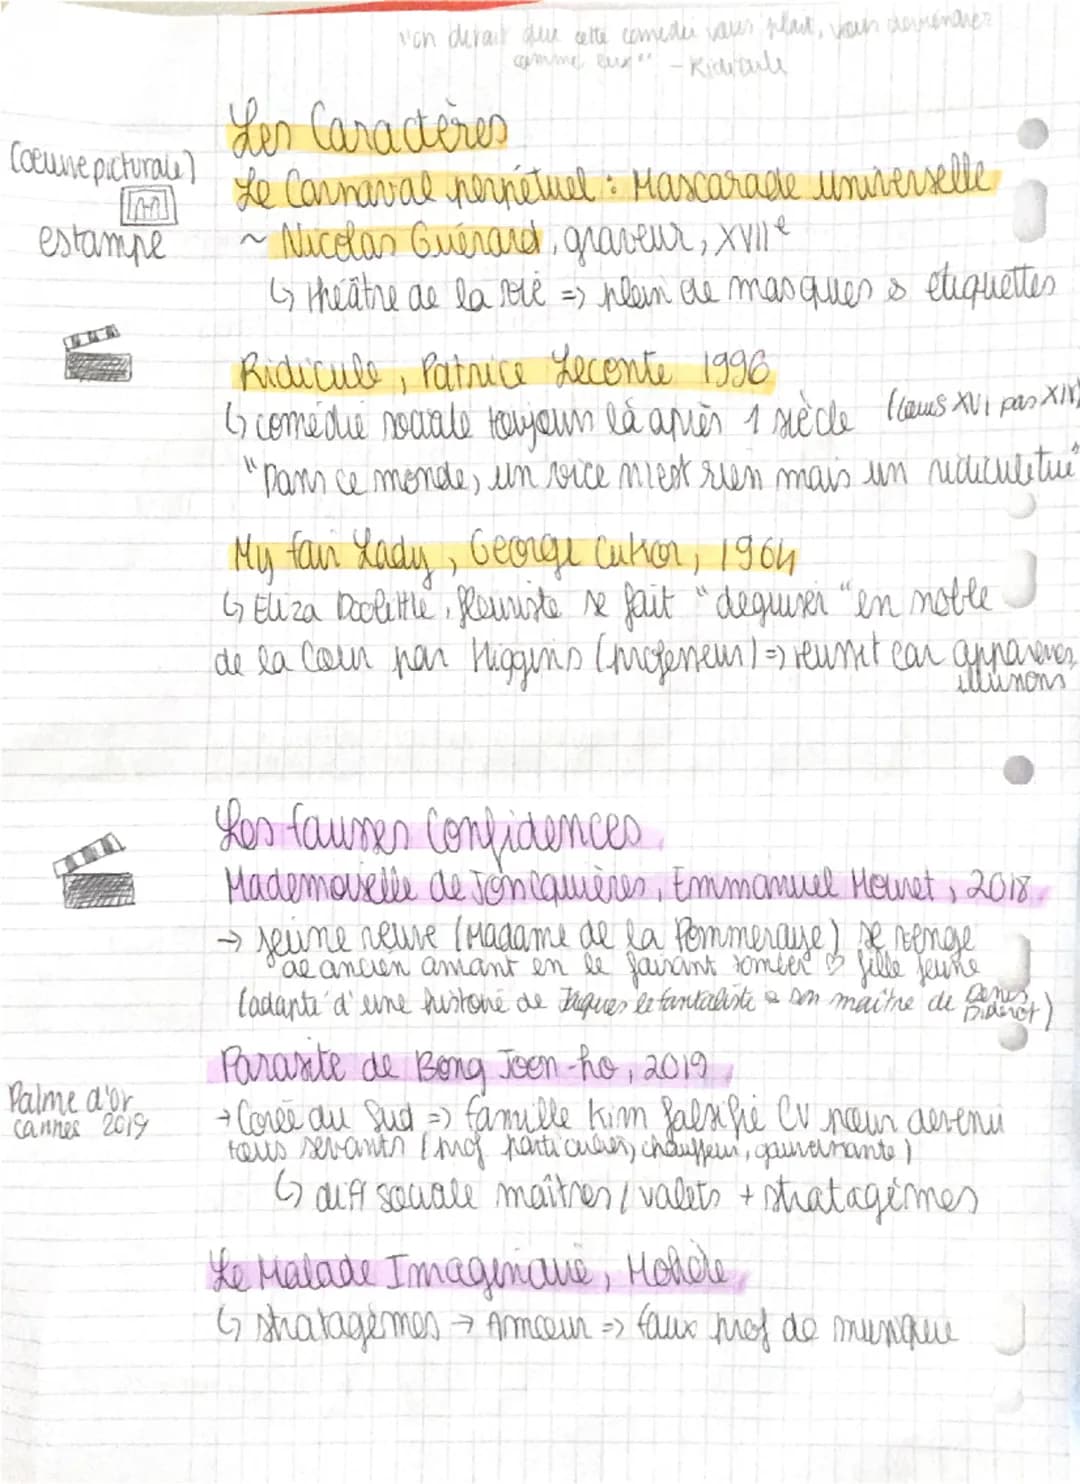 "on dirait que cette comédie vous plaît, vous deviendrez
comme eux" - Ridicule
Les Caractères
(oeuvre picturale)
Le Carnaval perpétuel : Mascarade universelle
estampe
~ Nicolas Guérard, graveur, XVIIe
↳ théâtre de la vie => plein de masques & étiquettes
Ridicule, Patrice Leconte 1996
↳ comédie sociale toujours là après 1 siècle (Louis XVI pas XIV)
"Dans ce monde, un vice n'est rien mais un ridicule tue"
My fair Lady, George Cukor, 1964
↳ Eliza Doolittle, fleuriste se fait "deguiser" en noble
de la Cour par Higgins (professeur) => reussit car apparences,
illusions
Les fausses Confidences
Mademoiselle de Joncquières, Emmanuel Mouret, 2018
→ jeune veuve (Madame de la Pommeraye) se venge
de ancien amant en le faisant tomber ♡ fille jeune
(adapté d'une histoire de Jaques le fantaliste & son maître de Denis
Diderot)
Parasite de Bong Joon-ho, 2019
Palme d'or
cannes 2019
→ Corée du Sud => famille Kim falsifie CV pour devenir
tous servants (prof particulier, chauffeur, gouvernante)
↳ diff sociale maîtres / valets + stratagèmes
Le Malade Imaginaire, Molière
↳ stratagèmes → Amour => faux prof de musique